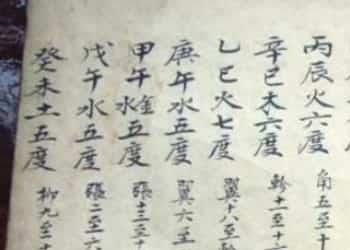 丙辰火六度 角五至十
辛巳木六度 軫十一至十
乙巳火七度 翼十八至
庚午水五度 翼六至
甲午金水五度 張三至十
戊午水五度 張二至六
癸未土五度 柳九至二